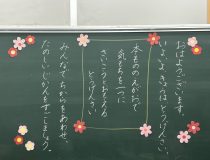 おはようございます。
いよいよ、きょうはとうげんさい。
本もののえがおで
気もちを一つに
さいこうとおもえる
とうげんさい
みんなで ちからをあわせ、
たのしいじかんをすごしましょう。